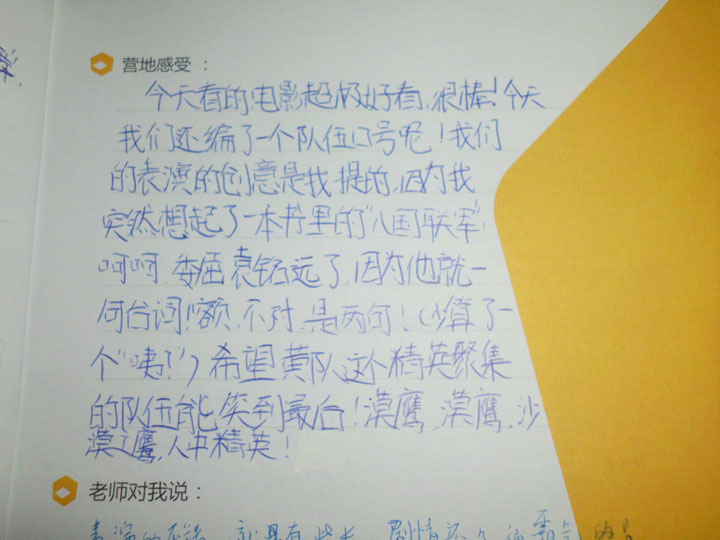 营地感受：
今天看的电影超级好看,很棒!今天
我们还编了一个队伍口号呢!我们
的表演的创意是我提的,因为我
突然想起了一本书里的"八国联军"
呵呵,委屈袁铭远了,因为他就一
句台词!额,不对,是两句!(少算了一
个"咦?")希望黄队这个精英聚集
的队伍能笑到最后!漠鹰,漠鹰,沙
漠之鹰,人中精英!
老师对我说：
表演的不错,就是有些长,剧情不